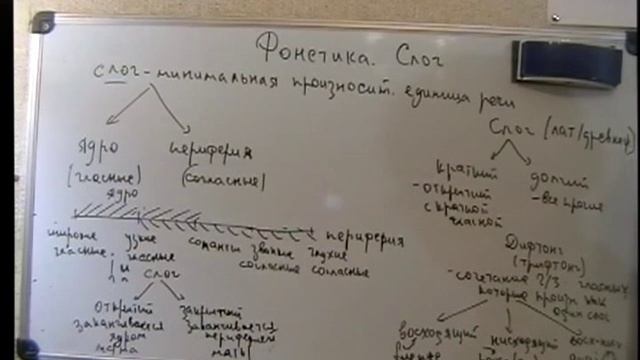 Фонетика. Слог
слог - минимальная произносит. единица речи
ядро
(гласные)
периферия
(согласные)
ядро
периферия
широкие гласные
узкие гласные
и
сонанты
звонкие согласные
глухие согласные
слог
открытый
заканчивается
ядром
закрытый
заканчивается
периферией
мать
Слог (лат/древнегр)
краткий
- открытый
с краткой
гласной
долгий
- все прочие
Дифтонг
(трифтонг)
- сочетание 2/3 гласных,
которые произн. как
один слог
восходящий
нисходящий